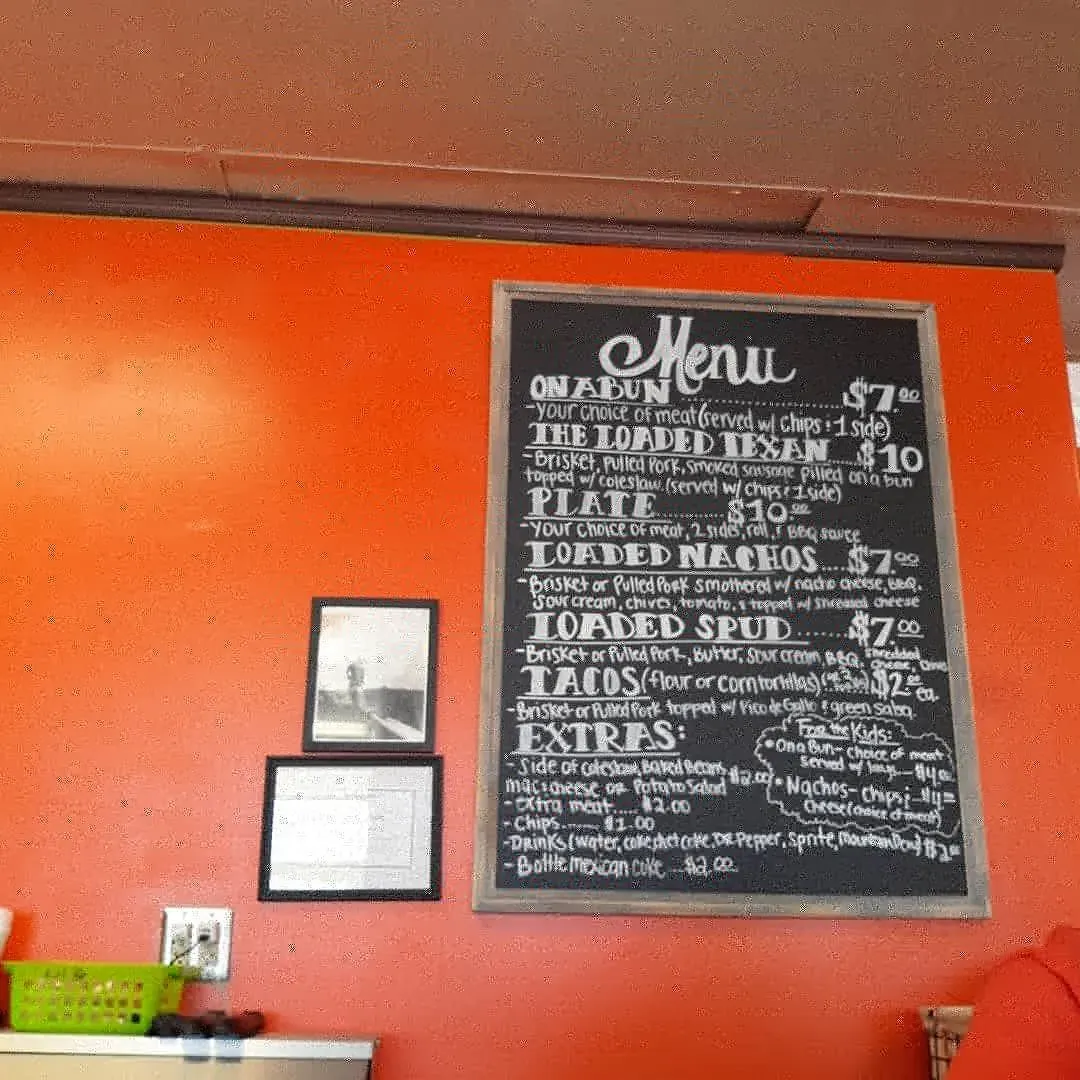 Menu
ON A BUN ........ $7.00
-Your choice of meat (served w/ chips & 1 side)
THE LOADED TEXAN ..... $10
-Brisket, Pulled Pork, smoked sausage piled on a bun
topped w/ coleslaw. (served w/ chips & 1 side)
PLATE ......... $10.00
-Your choice of meat, 2 sides, roll, & BBQ sauce
LOADED NACHOS .... $7.00
-Brisket or Pulled Pork smothered w/ nacho cheese, BBQ,
sour cream, chives, tomato, & topped w/ shredded cheese
LOADED SPUD ...... $7.00
-Brisket or Pulled Pork, Butter, Sour cream, BBQ, shredded cheese, chives
TACOS (flour or corn tortillas) $2.00 ea.
-Brisket or Pulled Pork topped w/ Pico de Gallo & green salsa
EXTRAS:
- Side of coleslaw, Baked Beans
mac & cheese or Potato Salad $2.00
- Extra meat..... $2.00
- Chips....... $1.00
-Drinks (water, coke, diet coke, DR Pepper, sprite, mountain Dew) $1.00
- Bottle mexican coke .... $2.00
For the Kids:
• On a Bun- choice of meat
served w/ $4.00
• Nachos- chips &
cheese (choice of meat) $4.00